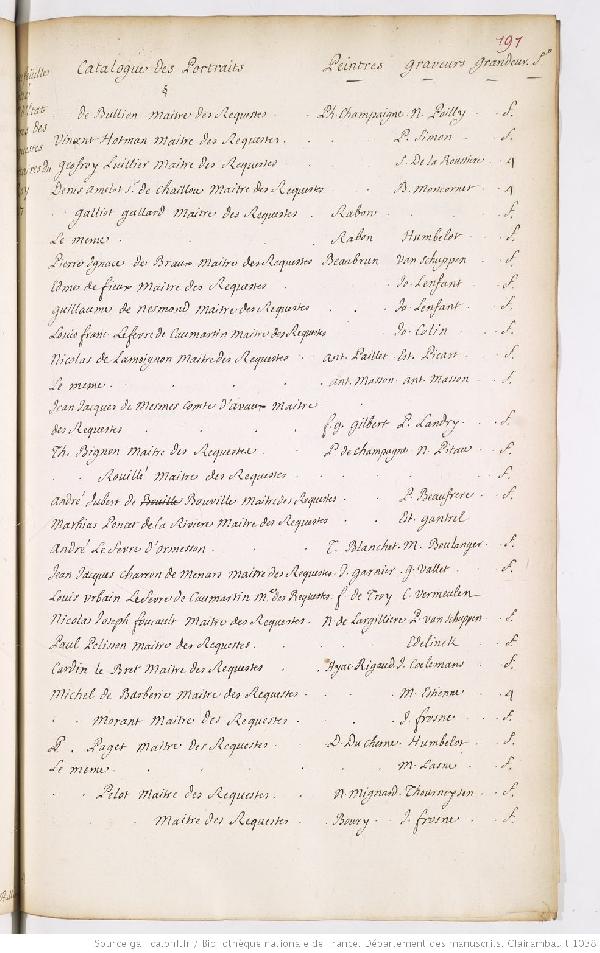 191
Catalogue des Portraits Peintres graveurs Grandeur. f°
§
de Bullion Maitre des Requestes Ph. Champaigne N. Poilly f.
Vincent Hotman Maitre des Requestes P. Simon f.
Geofroy Luillier Maitre des Requestes J. De la Roussiere 4
Denis Amelot Sr. de Chaillou Maitre des Requestes B. Moncornet 4
Galliot Gallard Maitre des Requestes Rabon f.
Le meme Rabon Humbelot f.
Pierre Ignace de Braux Maitre des Requestes Beaubrun Van Schuppen f.
Edme de fieux Maitre des Requestes Jo. Lenfant f.
Guillaume de Nesmond Maitre des Requestes Jo. Lenfant f.
Louis franc. Lefevre de Caumartin Maitre des Requestes Jo. Colin f.
Nicolas de Lamoignon Maitre des Requestes Ant. Paillet Et. Picart f.
Le meme Ant. Masson Ant. Masson f.
Jean Jacques de Mesmes Comte d'avaux Maitre
des Requestes f. g. Gilbert P. Landry f.
Th. Bignon Maitre des Requestes P. de Champagne N. Pitau f.
Rouillé Maitre des Requestes f.
André Jubert de Bouville Maitre des Requestes P. Beaufrere f.
Mathias Poncet de la Riviere Maitre des Requestes Et. Gantrel
André Le fevre d'ormesson T. Blanchet M. Boulanger f.
Jean Jacques Charron de Menars Maitre des Requestes J. Garnier G. Vallet f.
Louis Urbain Lefevre de Caumartin Me. des Requestes f. de Troy C. Vermeulen
Nicolas Joseph foucault Maitre des Requestes N. de Largilliere P. van Schuppen f.
Paul Pelisson Maitre des Requestes Edelinck f.
Cardin le Bret Maitre des Requestes Hyac. Rigaud J. Coelemans f.
Michel de Barberie Maitre des Requestes M. Etienne 4
Morant Maitre des Requestes J. frosne f.
P. Paget Maitre des Requestes D. Du Chesne Humbelot f.
Le meme M. Lasne f.
Pelot Maitre des Requestes N. Mignard Thourneysen f.
Maitre des Requestes Boury J. frosne f.
Source gallica.bnf.fr / Bibliothèque nationale de France. Département des manuscrits. Clairambault 1038